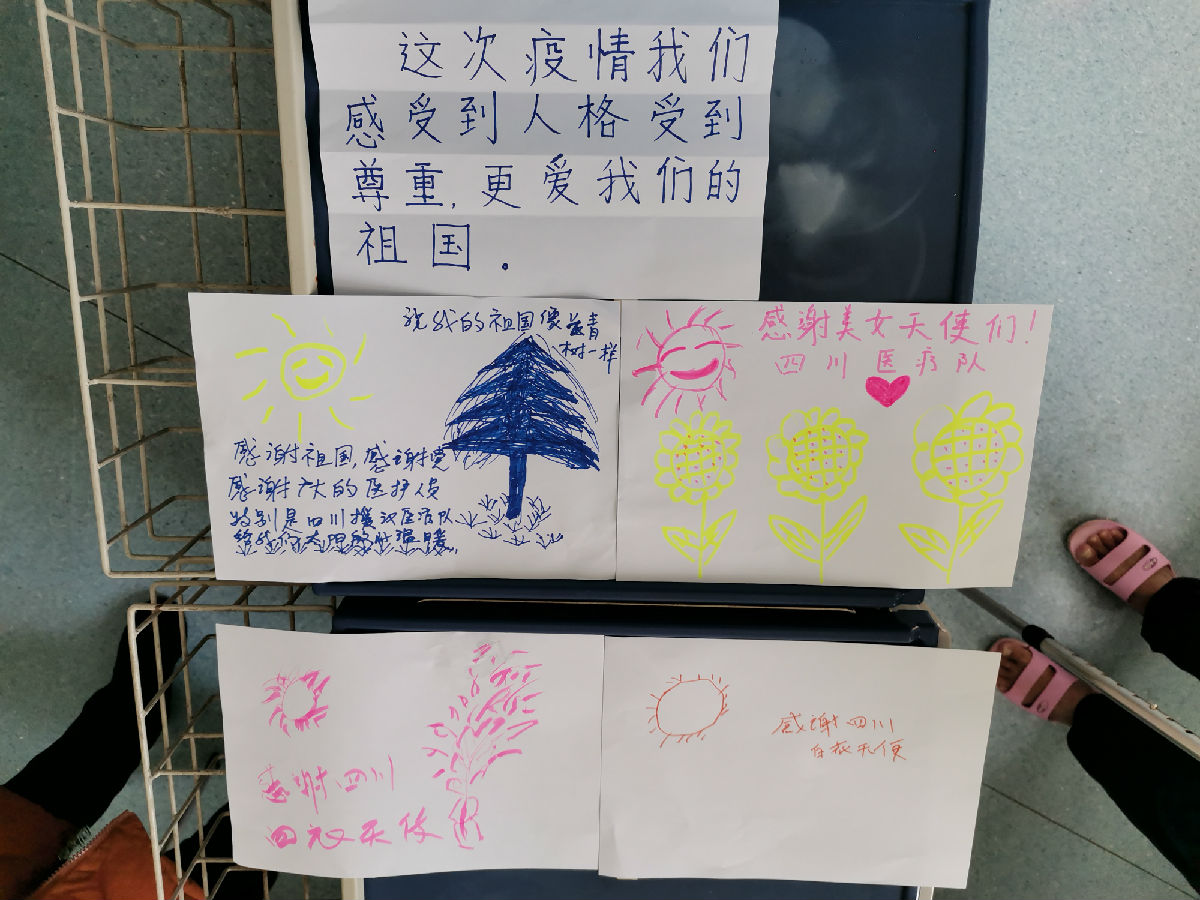 这次疫情我们
感受到人格受到
尊重,更爱我们的
祖国.
祝我的祖国像
青
树一样
感谢祖国,感谢党
感谢广大的医护人员
特别是四川援汉医疗队
感谢美女天使们!
四川医疗队
感谢四川
白衣天使
感谢四川
白衣天使